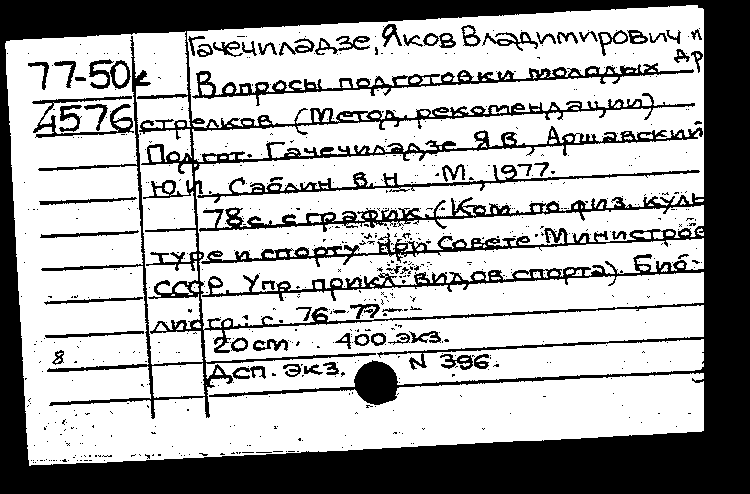 Гачечиладзе, Яков Владимирович и др
77-50к
4576
Вопросы подготовки молодых
стрелков. (Метод. рекомендации).
Подгот. Гачечиладзе Я.В., Аршавский
Ю.И., Саблин В.Н. М., 1977.
78с. с график. (Ком. по физ. куль-
туре и спорту при Совете Министров
СССР. Упр. прикл. видов спорта). Биб-
лиогр.: с. 76-77.
20 см. 400 экз.
8.
Дсп. экз. N 396.